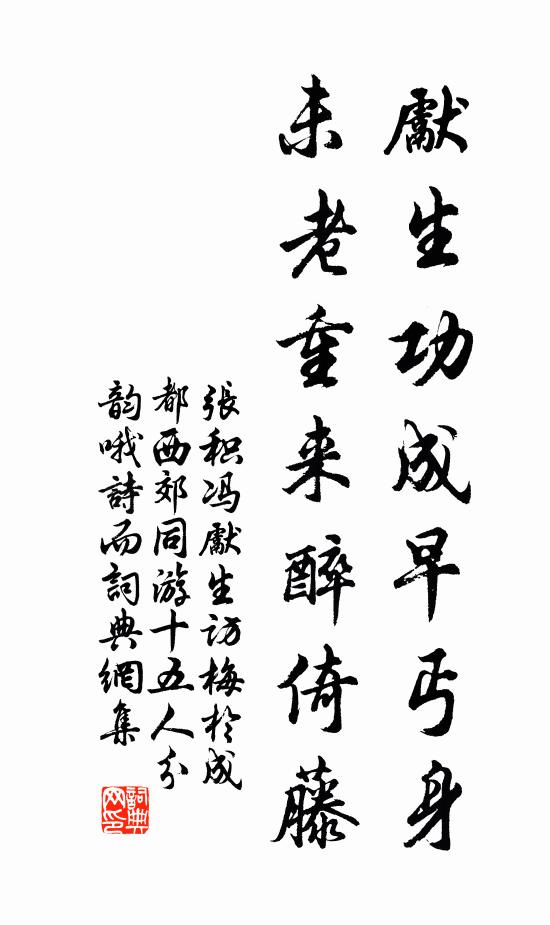 獻生功成早丐身
未老重来醉倚藤
張积冯獻生访梅於成
都西郊同游十五人分
韵哦詩而詞典網集
詞典网印